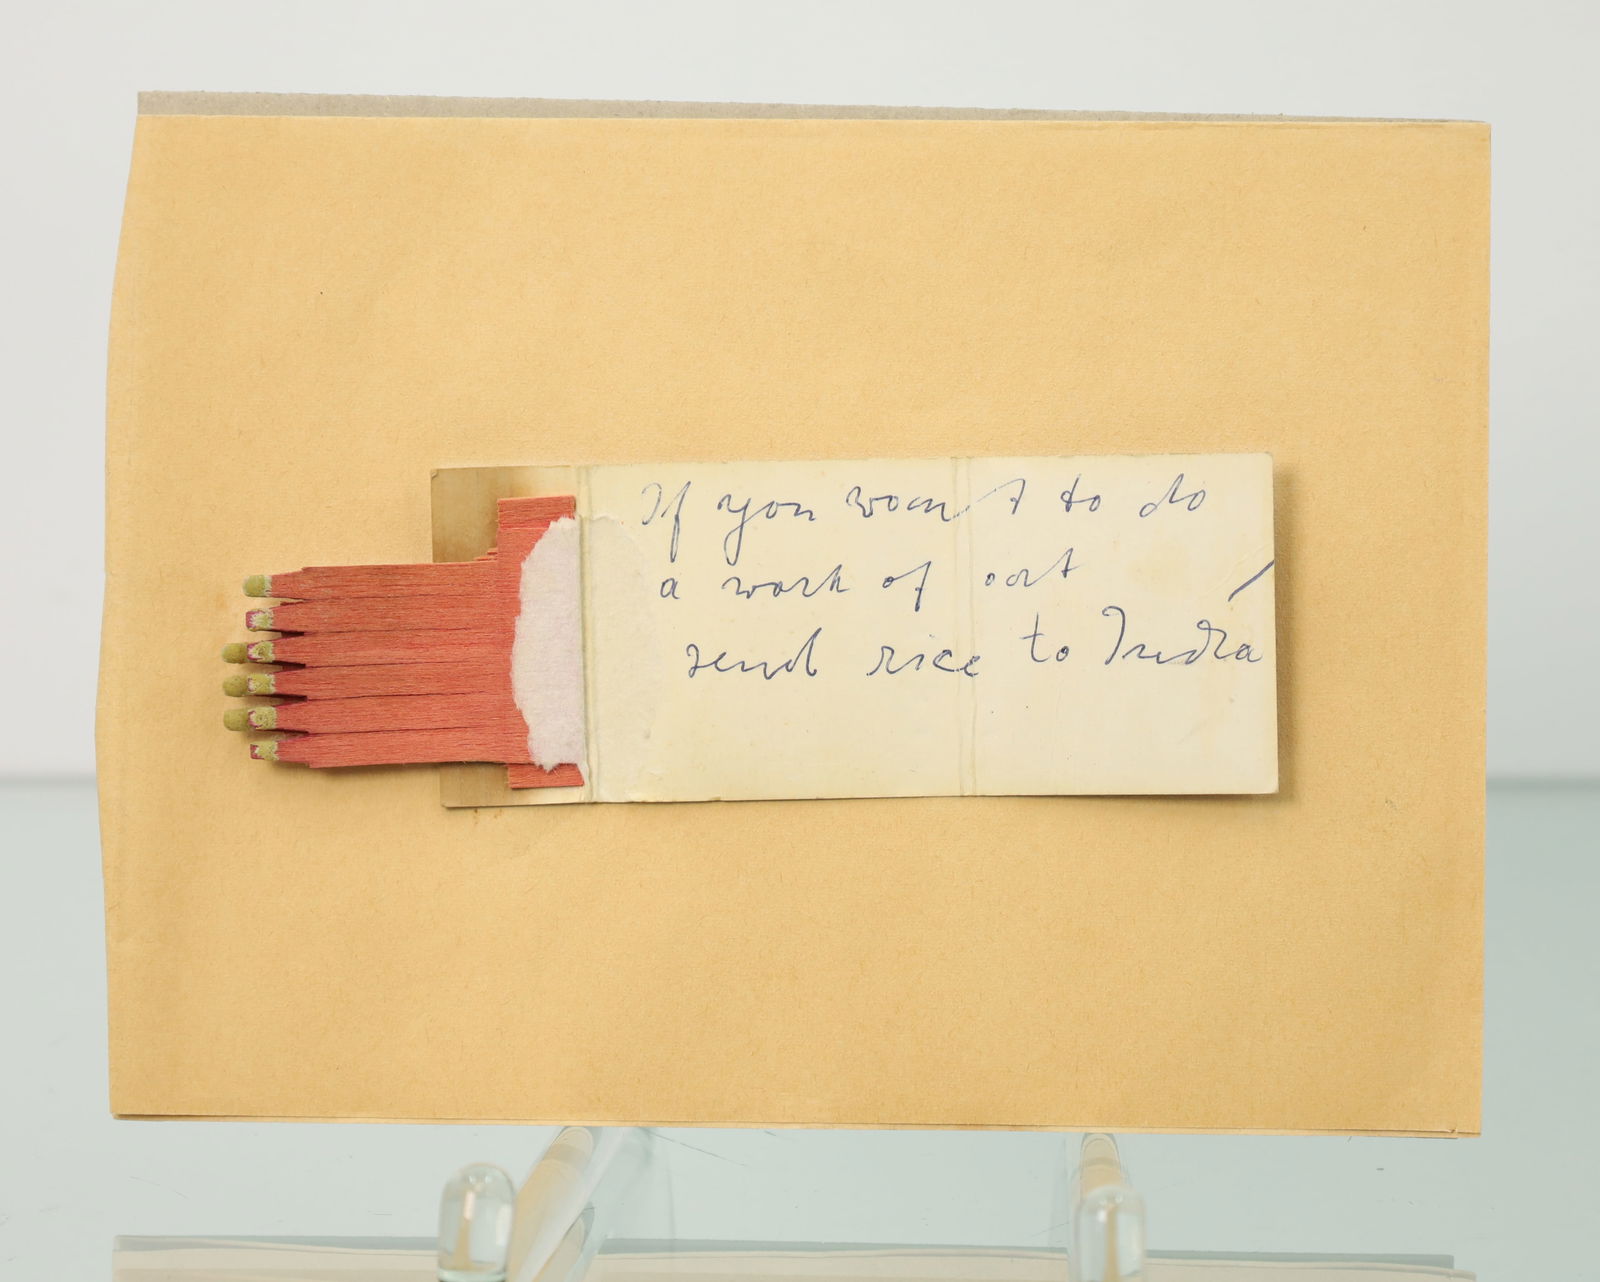 If you want to do
a work of art
send rice to India